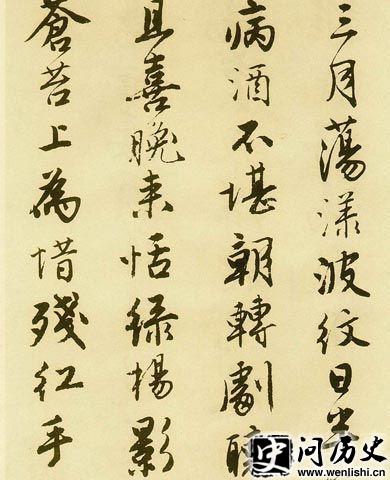 三月蕩漾波紋日半
病酒不堪朝轉劇聽
且喜晚来恬綠楊影
蒼苔上為惜殘紅手
问历史
www.wenlishi.cn